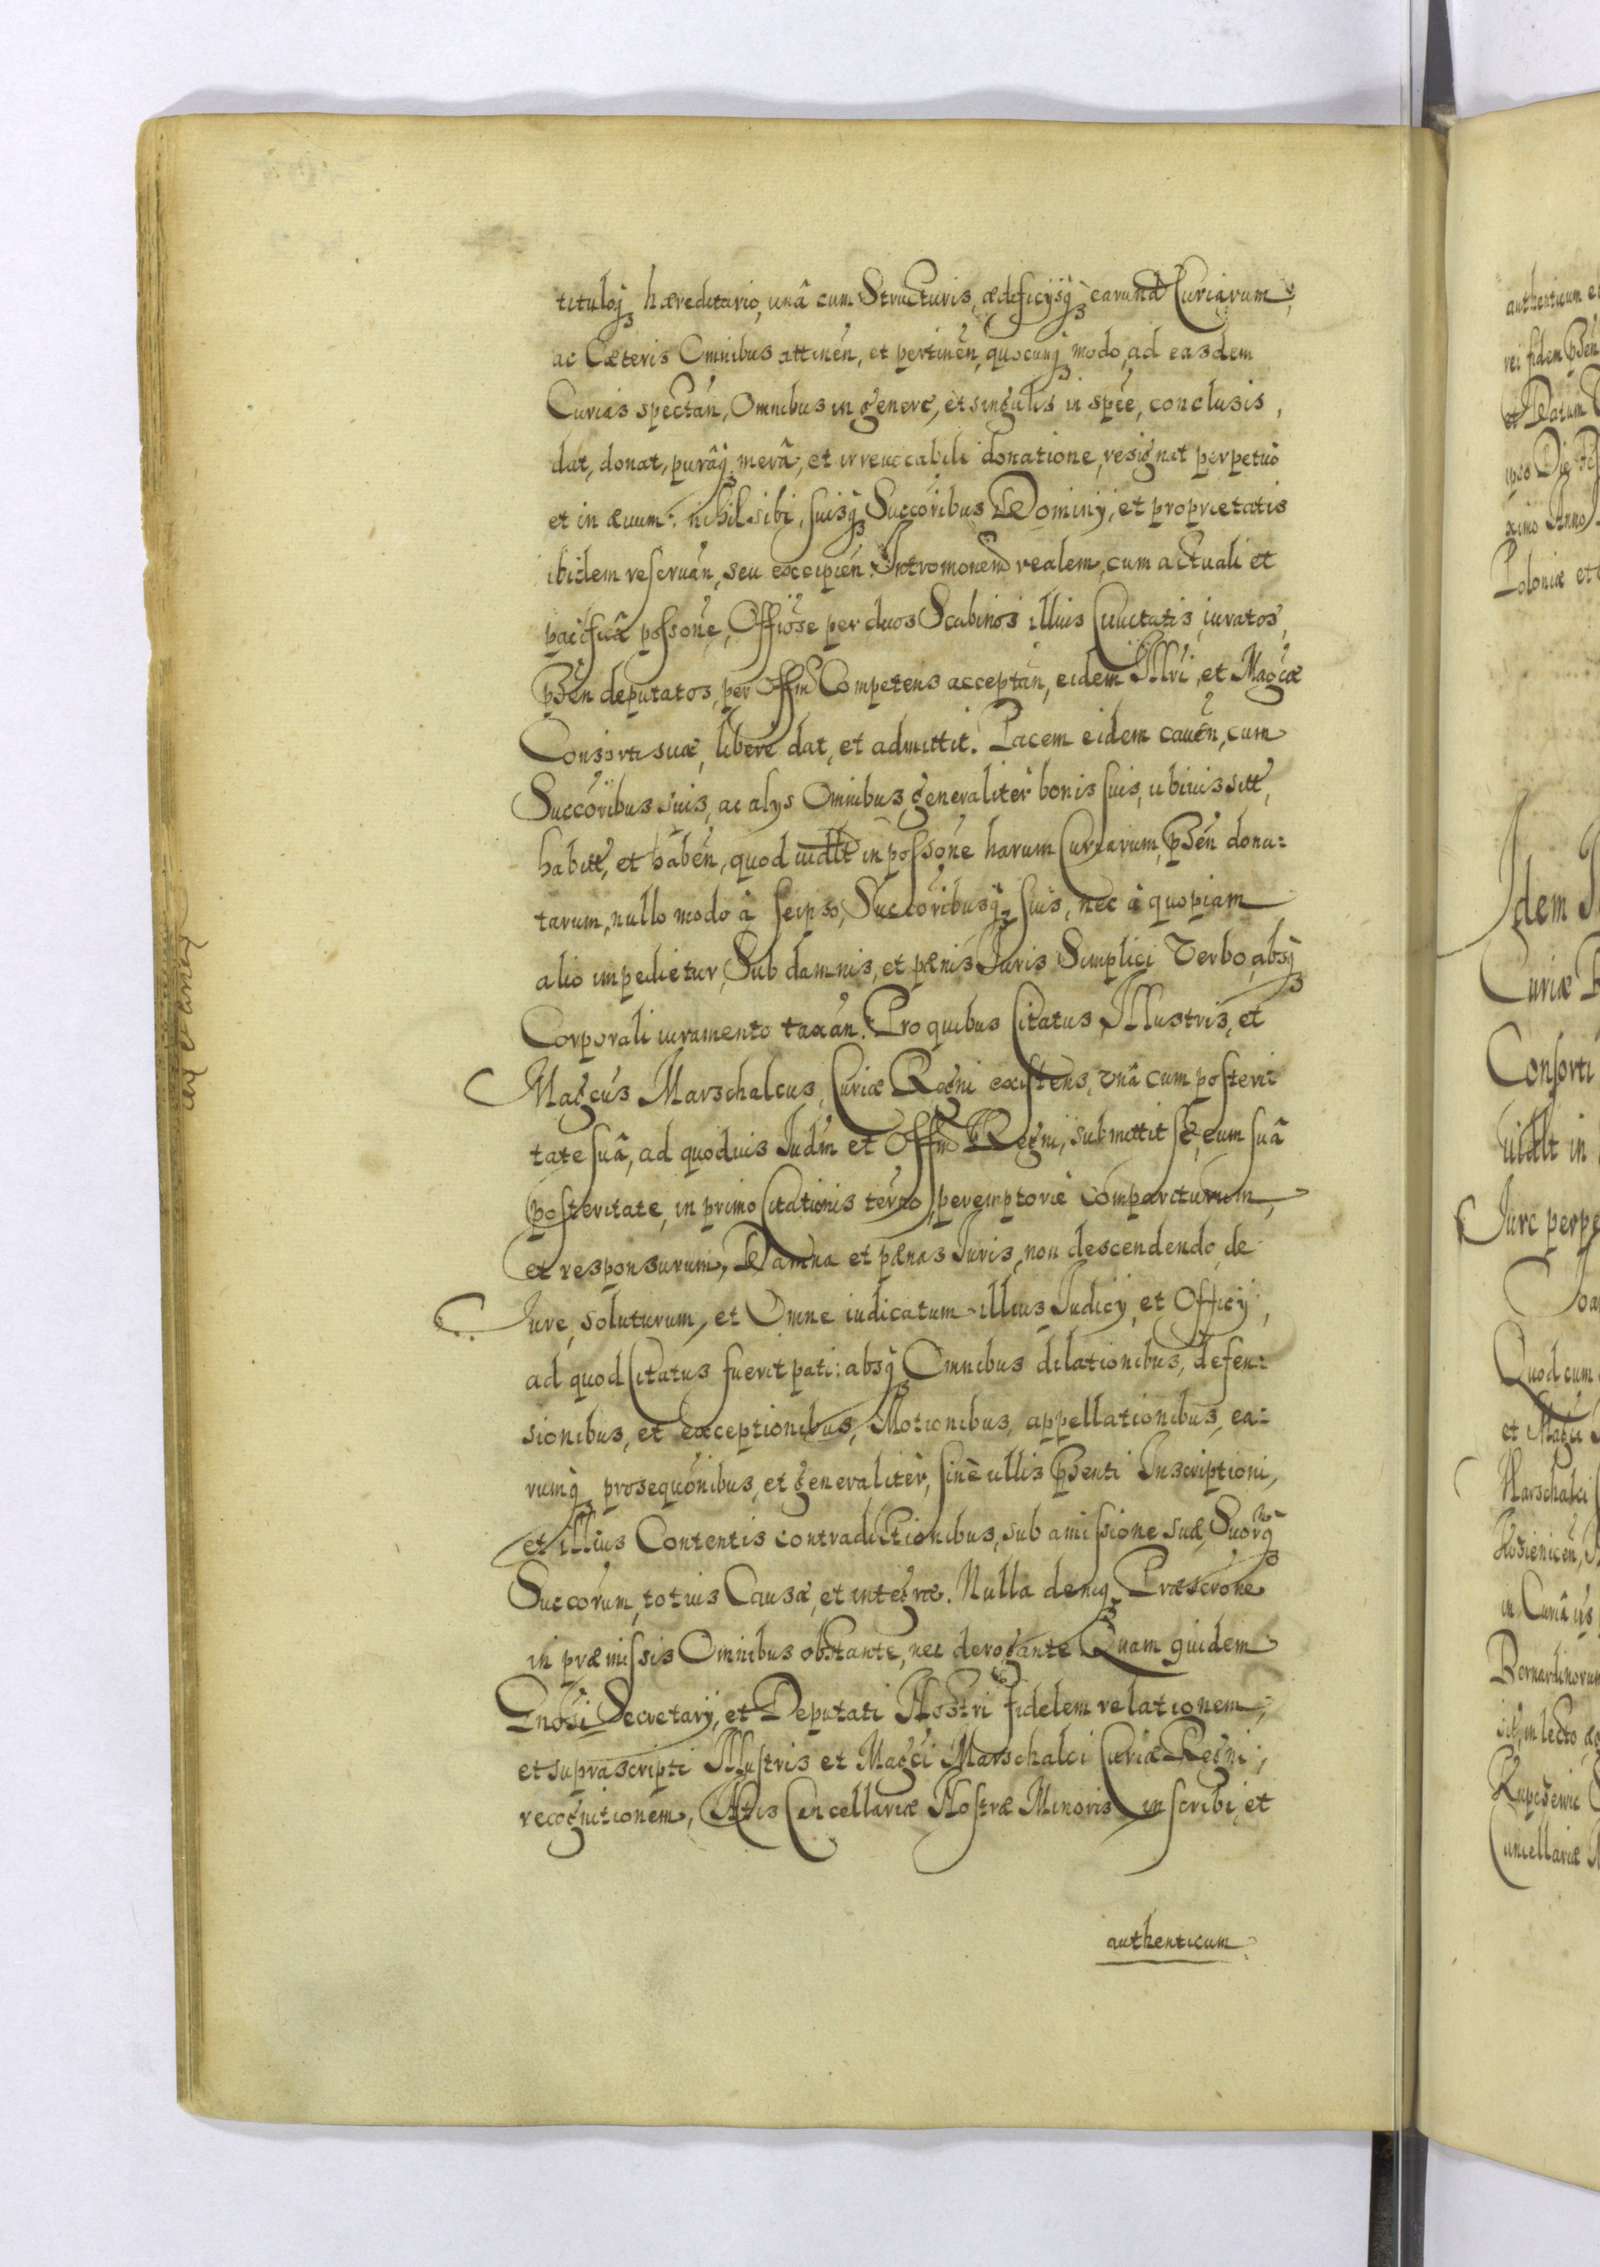 tituloq3 hæreditario, unâ cum Structuris, ædificijsq3 earund Curiarum,
ac Cæteris Omnibus attinen̄, et pertinen̄, quocunq3 modo, ad easdem
Curias spectan̄, Omnibus in genere, et singulis in spēe, conclusis,
dat, donat, purâq3 merâ, et irreuocabili donatione, resignat perpetuò
et in æuum: nihil sibi, suisq3 Succōribus Dominij, et proprietatis
ibidem reseruan̄, seu excipien̄. Intromonem̄ realem, cum actuali et
pacifica possōne, Offiōse per duos Scabinos illius Ciuitatis, iuratos,
p̄sen̄ deputatos, per Offm̄ Competens acceptan̄, eidem Illri, et Mag̃cæ
Consorti suæ, liberè dat, et admittit. Pacem eidem cauen̄, cum
Succōribus suis, ac alijs Omnibus generalitèr bonis suis, ubiuis sitt̄,
habitt̄, et haben̄, quod uidlt in possōne harum Curiarum, p̄sen̄ dona=
tarum, nullo modo à seipso, Succōribusq3 suis, nec à quopiam
alio impedietur, Sub damnis, et pænis Iuris Simplici Verbo, absq3
Corporali iuramento taxan̄. Pro quibus Citatus Illustris, et
Mag̃cus Marschalcus, Curiæ Regni existens, vnâ cum posteri=
tate suâ, ad quoduis Iudm̄ et Offm̄ Regni, submittit sē, cum suâ
posteritate, in primo Citationis termo, peremptoriè compariturum,
et responsurum, Damna et pænas Iuris, non descendendo, de
Iure, soluturum, et Omne iudicatum illius Iudicij, et Officij,
ad quod Citatus fuerit pati: absq3 Omnibus dilationibus, defen=
sionibus, et exceptionibus, Motionibus, appellationibus, ea=
rumq3 prosequōnibus, et generalitèr, sinè ullis p̄senti Inscriptioni,
et illius Contentis contradictionibus, sub amissione suæ, Suorq3
Succorum, totius Causæ, et integræ. Nulla deniq3 Præscrōne
in præmissis Omnibus obstante, nec derogante Quam quidem
Gnōsi Secretarij, et Deputati Nostri fidelem relationem,
et suprascripti Illustris et Mag̃ci Marschalci Curiæ Regni,
recognitionem, Actis Cancellariæ Nostræ Minoris inscribi, et
authenticum
authenticum
rei fidem p̄sen̄
et Datum
ipso Die
ximo Anno
Poloniæ et
Idem
Curiæ R
Consorti
uidlt in
Iure perpe
Ioa
Quod cum
et Mag̃ci
Marschalci
in Curiâ
Bernardinorum
in lecto
Cancellariæ